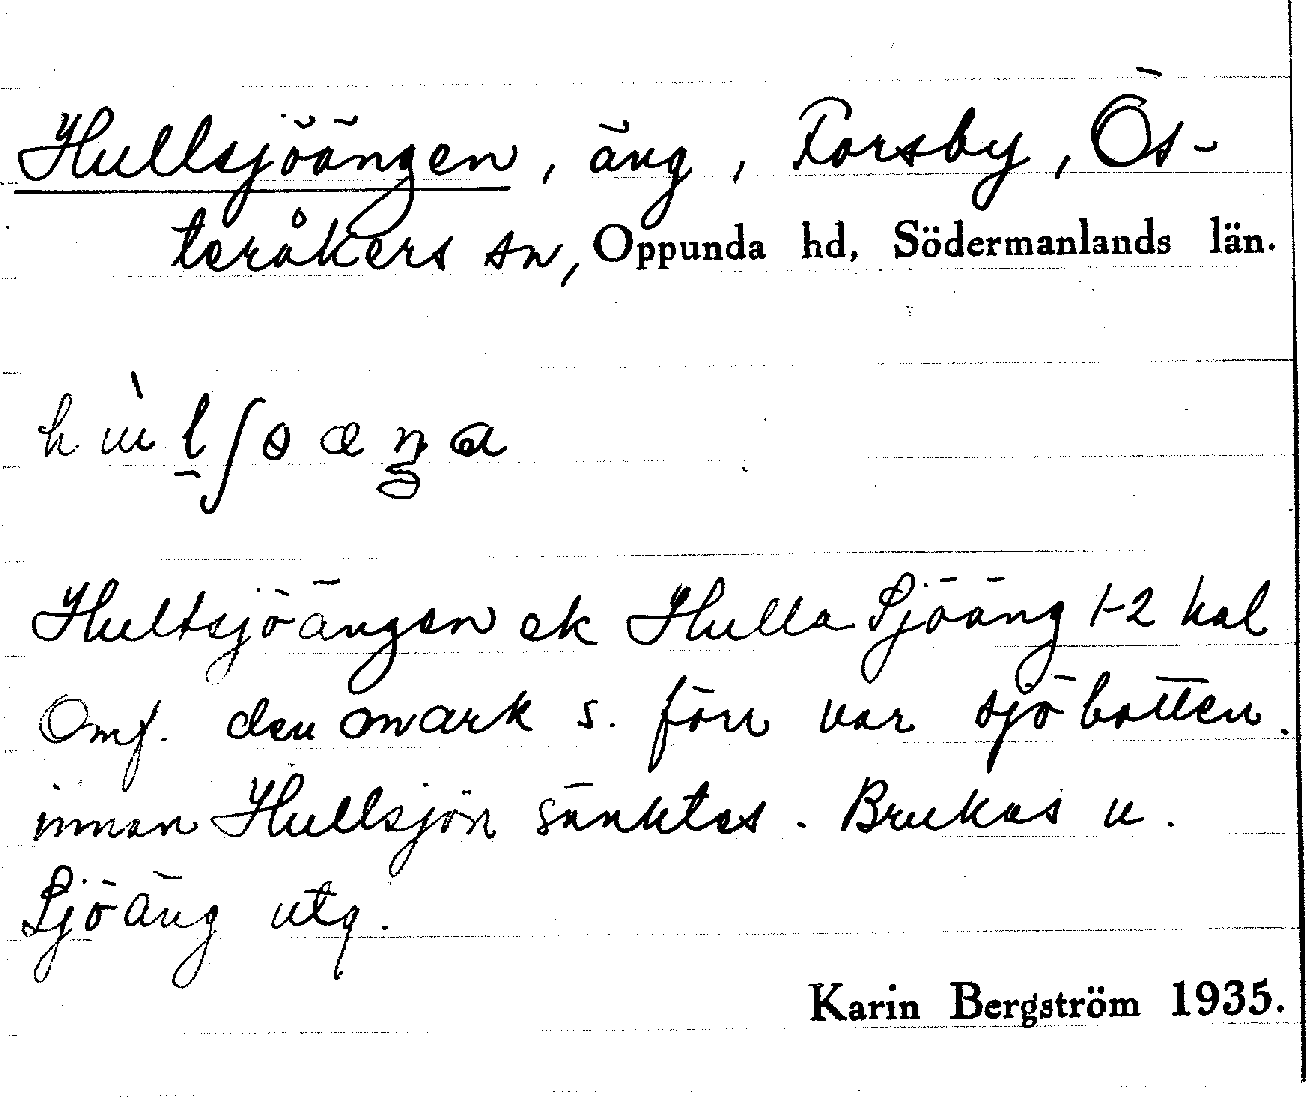 Hullsjöängen, äng, Forsby, Ös-
teråkers sn, Oppunda hd, Södermanlands län.
Hultsjöängen ek Hulla Sjöäng 1-2 kal
Omf. den mark s. förr var sjöbotten.
innan Hullsjön sänktes. Brukas u.
Sjöäng utg.
Karin Bergström 1935.